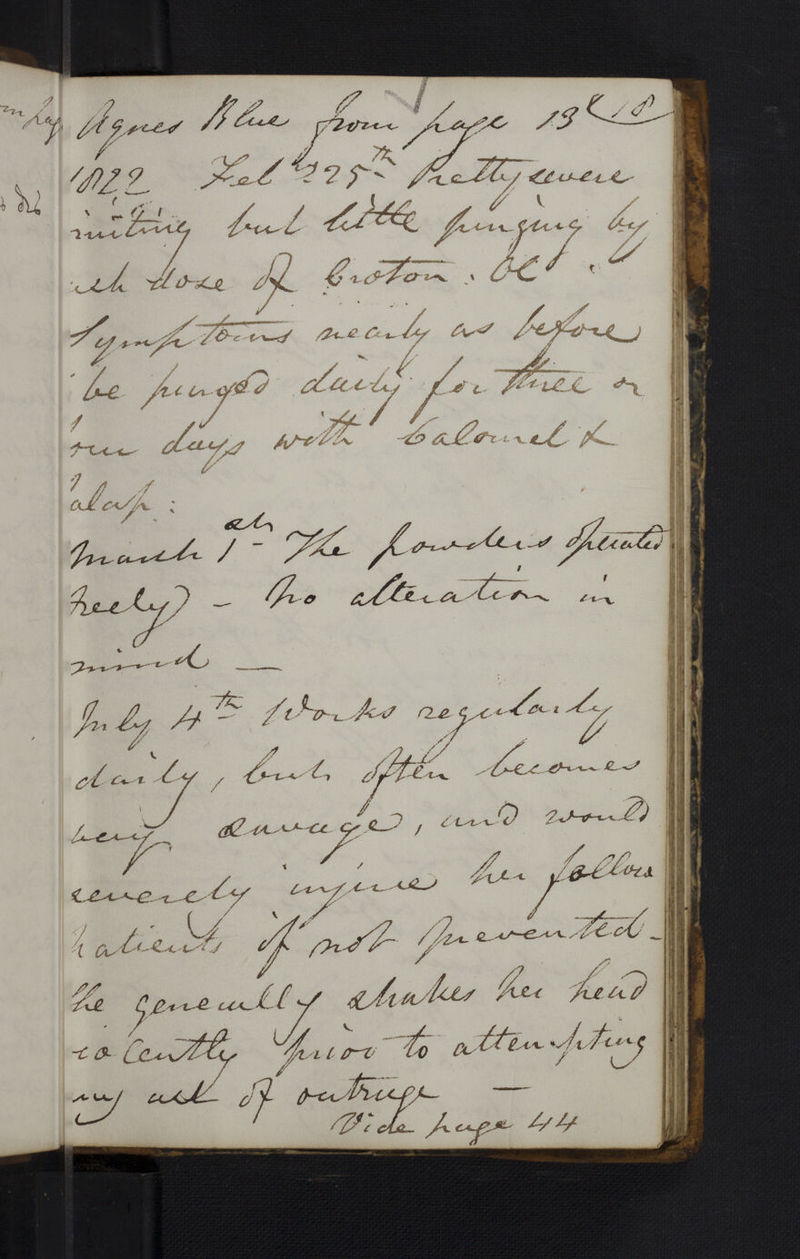 Agnes Blue from page 13 18
1822 Feb 25th Pretty severe
miting but little purging by
ch dose of Croton. Ol.
Symptoms nearly as before
be purged daily for three or
our days with Calomel &
alap:
March 1st The powders operated
freely - No alteration in
mind —
July 4th Works regularly
daily, but often becomes
very savage, and would
severely injure her fellow
patients if not prevented -
She generally shakes her head
iolently prior to attempting
ny act of outrage —
Vide page 44